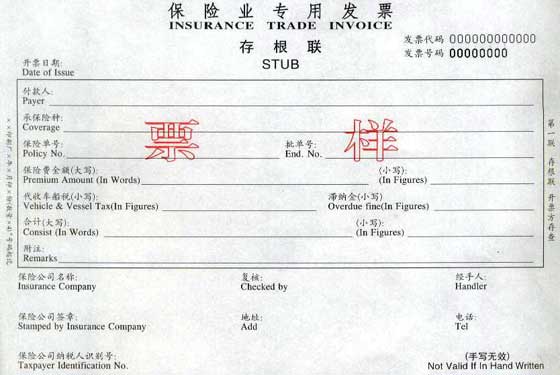 保险业专用发票
INSURANCE TRADE INVOICE
存根联
STUB
发票代码 000000000000
发票号码 00000000
开票日期:
Date of Issue
付款人:
Payer
承保险种:
Coverage
保险单号:
Policy No.
批单号:
End. No.
票样
保险费金额(大写):
Premium Amount (In Words)
(小写):
(In Figures)
代收车船税(小写):
Vehicle & Vessel Tax(In Figures)
滞纳金(小写):
Overdue fine(In Figures)
合计(大写):
Consist (In Words)
(小写):
(In Figures)
附注:
Remarks
第一联 存根联 开票方存查
保险公司名称:
Insurance Company
复核:
Checked by
经手人:
Handler
保险公司签章:
Stamped by Insurance Company
地址:
Add
电话:
Tel
保险公司纳税人识别号:
Taxpayer Identification No.
(手写无效)
Not Valid If In Hand Written